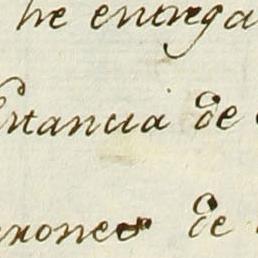 he entrega
stancia de
de